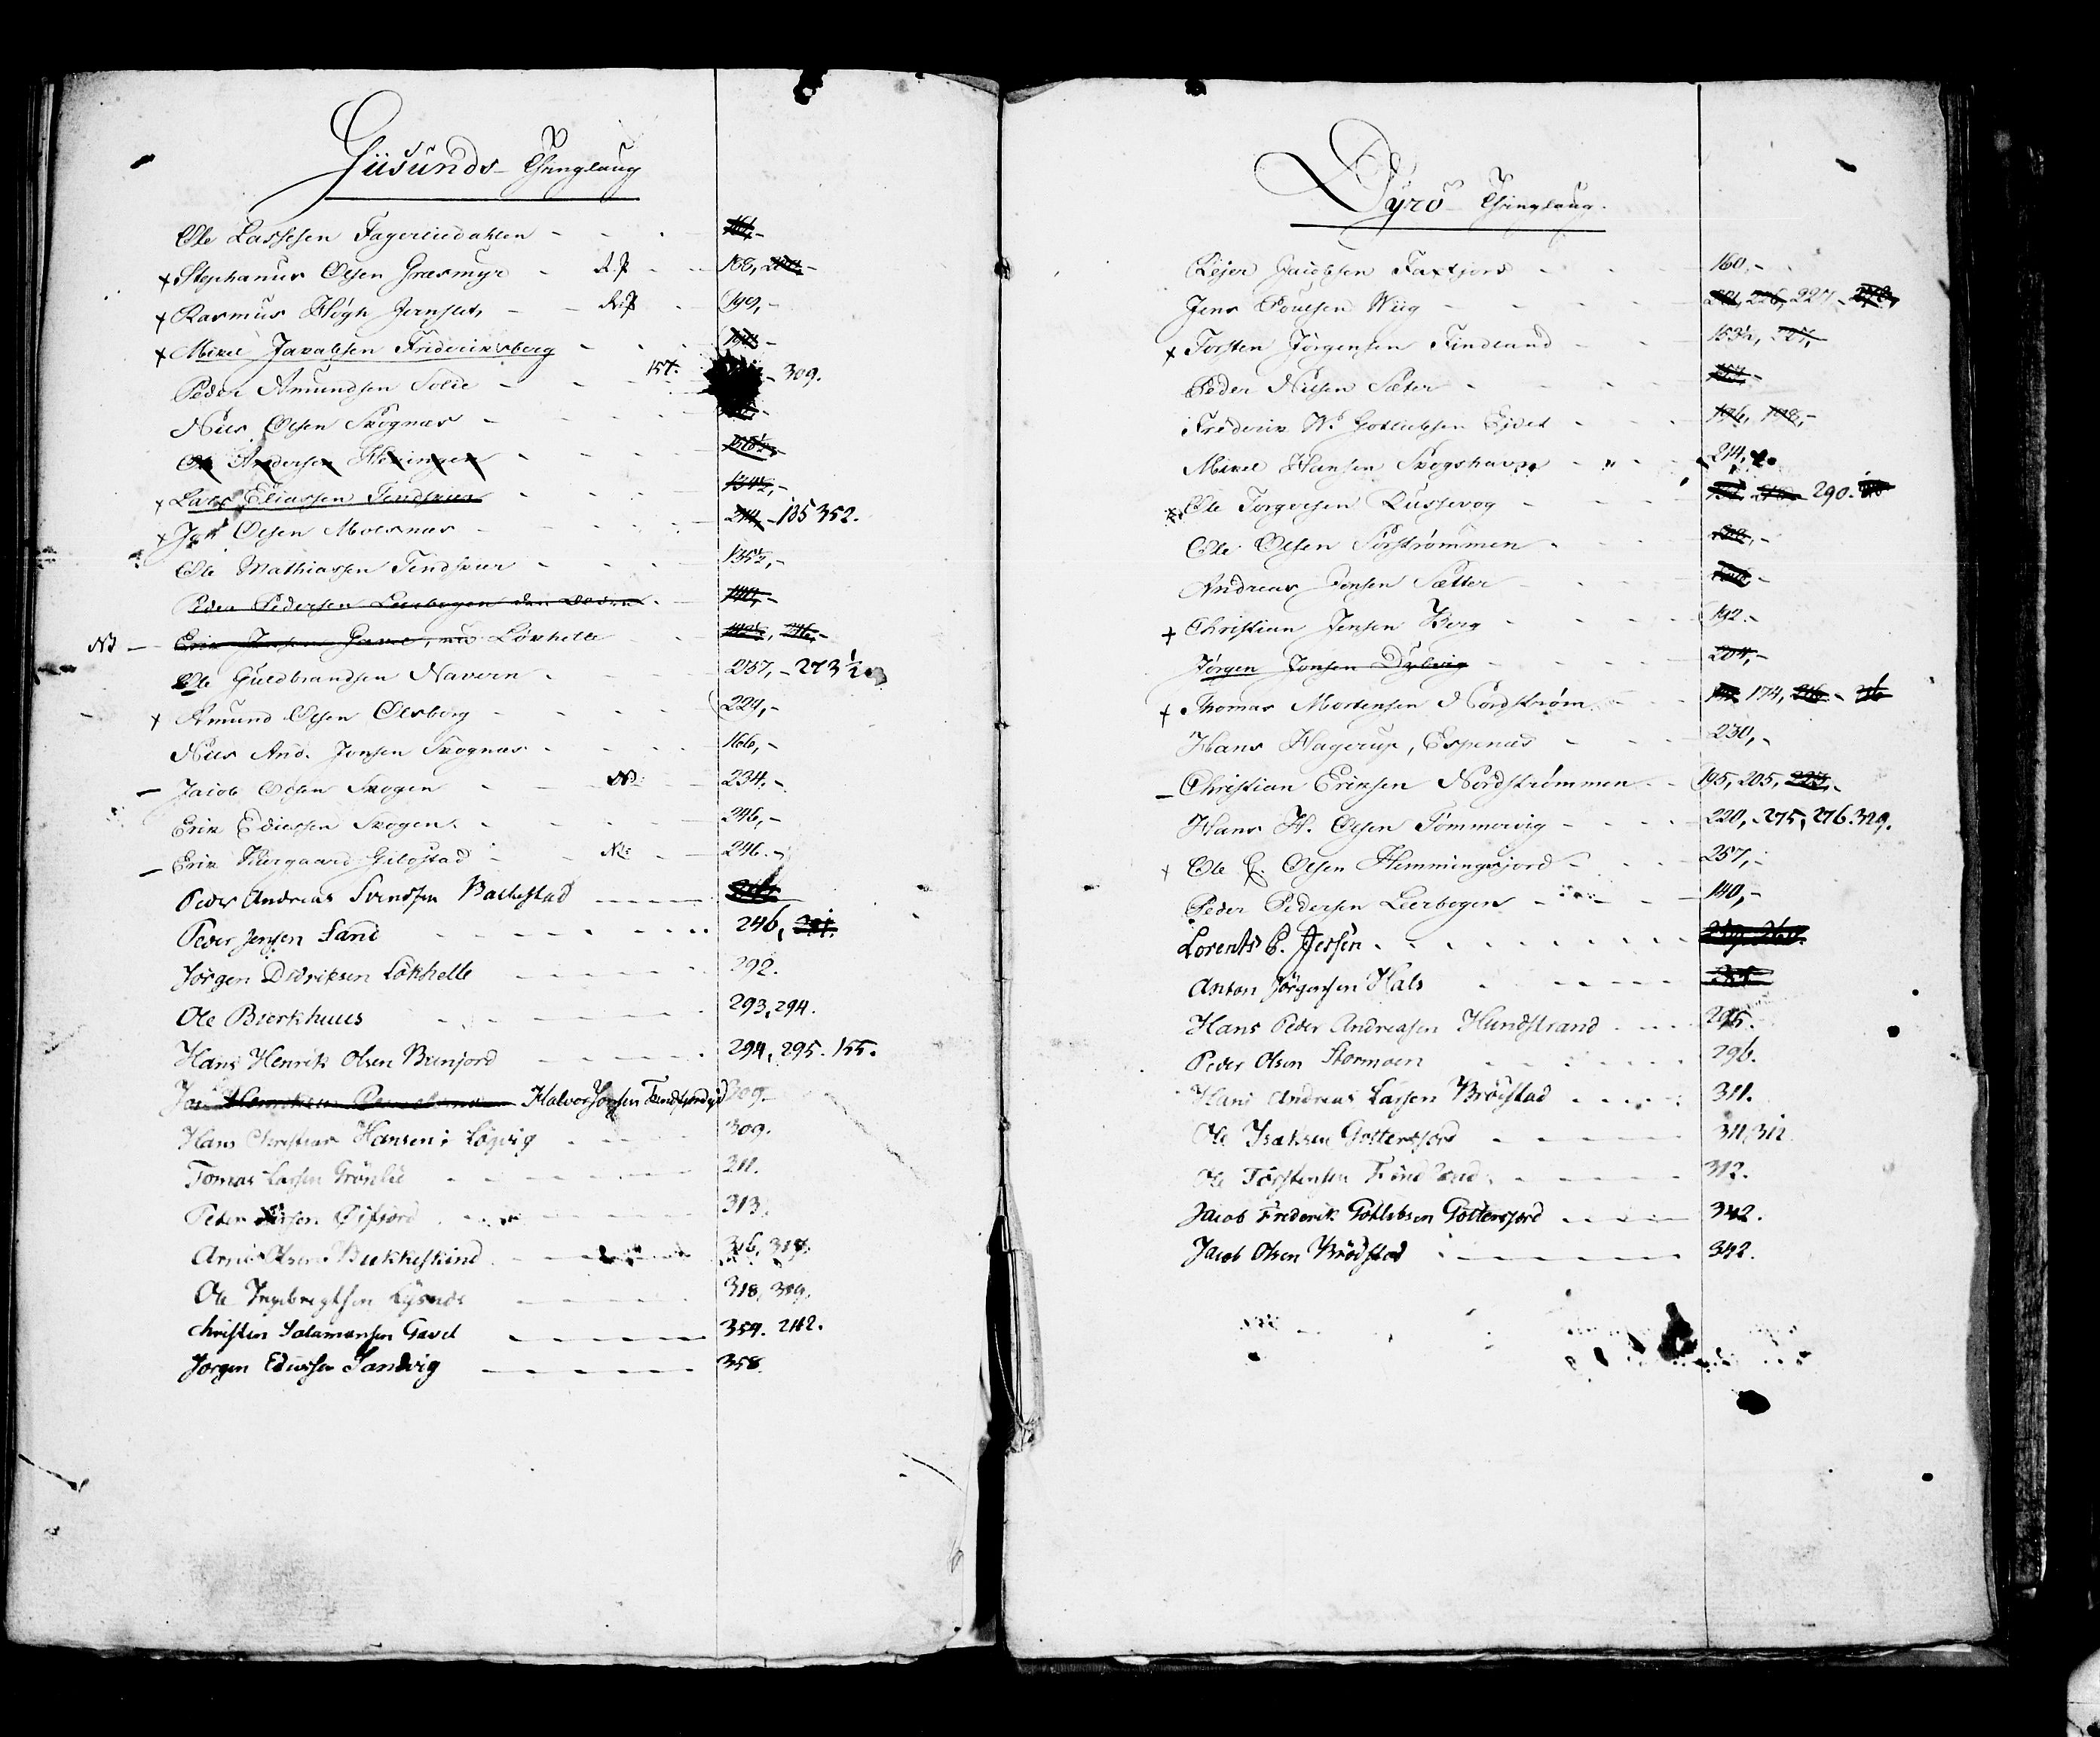 Giisunds Thinglaug
Ole Lassesen Fagerliedahlen
+ Stephanus Olsen Græsmyr R.P. 188,
+ Rasmus Høgh Jernslet, R.P. 199,
+ Mikel Jacobsen Frideriksberg
Peder Amundsen Solie 157. 309.
Niels Olsen Skognæs
Ole Andersen
+ Lars Eliassen Fendskur 134½,
+ Olsen Moesnæs 214 - 185 352.
Ole Mathiassen Fendskur 135½,
Peder Pedersen Leerbogen 140,
NB Erik Jensen Gavel, Løxhelle
Ole Guldbrandsen Navern 257, - 273½
+ Amund Olsen Olsborg 224,
Niels And. Jonsen Skognæs 166,
Jacob Olsen Skogen NB: 234.
Erik Ediassen Skogen 246,
Erik Kiergaard Gibostad NB: 246.
Peder Andreas Svendsen Bakkestad
Peder Jensen Sand 246,
Jørgen Didriksen Løkhelle 292.
Ole Bierkhuus 293, 294.
Hans Henrik Olsen Bunjord 294, 295. 155.
Halvor Jonsen 309.
Hans Christian Hansen i Løgvig 309.
Tomas Larsen Grønlie 311.
Peder 313.
Arnt Olsen Bukkeskind 316, 318.
Ole Ingebrigtsen Lysnes 318, 309.
Christen Salamonsen Gavel 354. 242.
Jørgen Ediassen Sandvig 358.
Dyrö Thinglaug.
Pejer Jacobsen Faxfjord 160,
Jens Poulsen Wiig 221, 226, 227,
+ Torsten Jørgensen Findland 153½,
Peder Nilsen Sæter
Frederik Wd Gotlibsen Ejdet 196, 198,
Mikel Hansen Skogshavn 214,
Ole Torgersen Russevog 290.
Ole Olsen Sørstrømmen
Andreas Jensen Sætter
+ Christian Jensen Berg 192.
Jørgen Jonsen Dybvig 204,
+ Thomas Mortensen Nordstrøm 174, 216
Hans Hagerup, Espenæs 230,
Christian Eriksen Nordstrømmen 195, 205,
Hans H. Olsen Tømmervig 220, 275, 276. 329.
+ Ole Olsen Hemmingsfjord 257,
Peder Pedersen Leerbogen 140,
Lorents E. Jessen
Anton Jørgensen Hals
Hans Peder Andreasen Hundstrand 295.
Peder Olsen Stormoen 296.
Hans Andreas Larsen Brøstad 311.
Ole Isaksen Gottersfjord 311, 312.
Ole Torstensen Findland 312.
Jacob Frederik Gotlibsen Gottersfjord 342.
Jacob Olsen Brødstad 342.